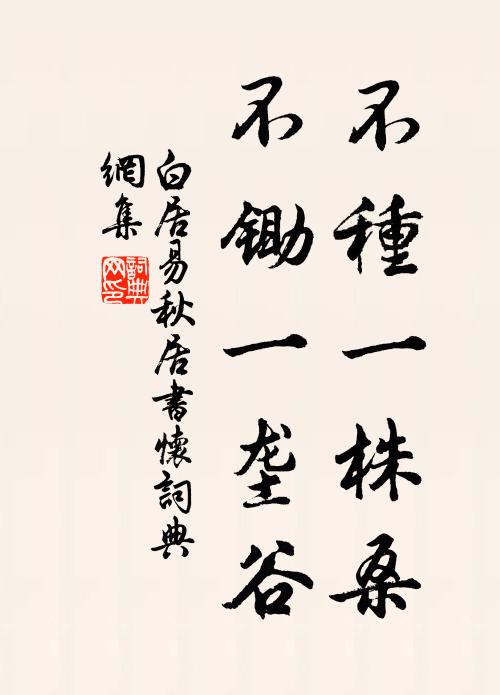 不種一株桑
不鋤一垄谷
白居易秋居書懷詞典
網集
詞典
网印